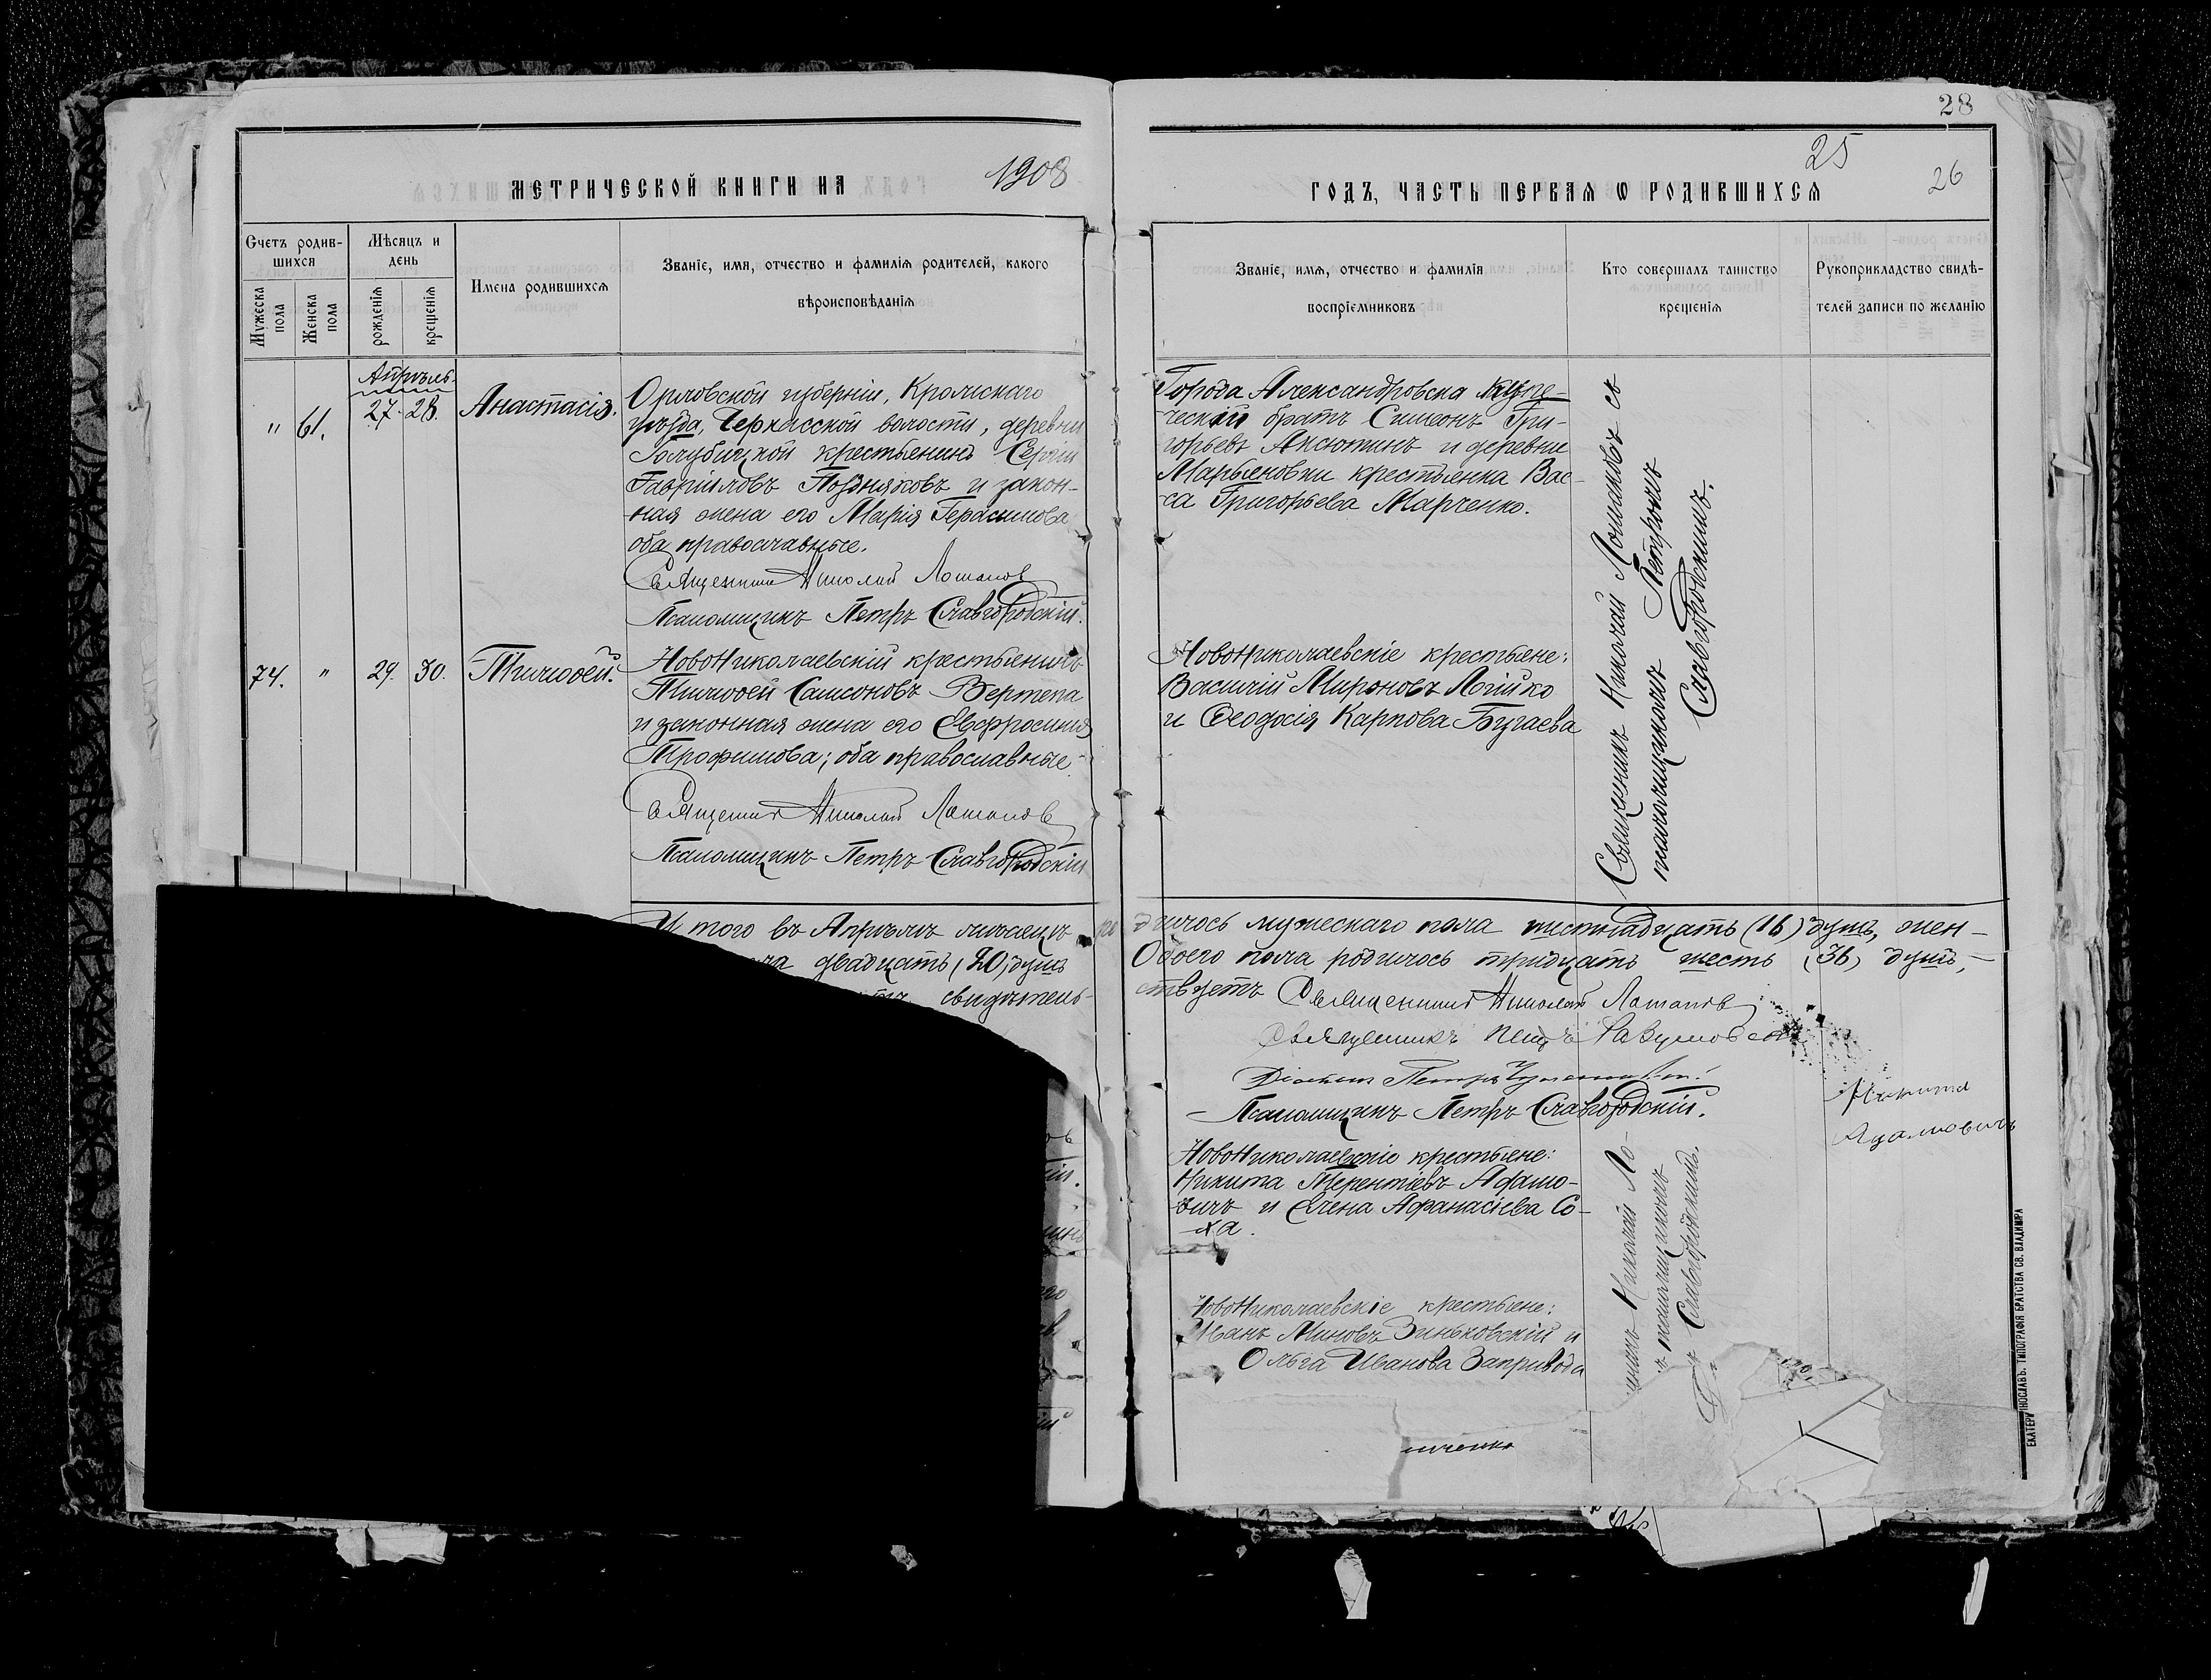 28
МЕТРИЧЕСКОЙ КНИГИ НА 1908
ГОДЪ, ЧАСТЬ ПЕРВАЯ Ѡ РОДИВШИХСЯ
25
26
Счетъ родив-
шихся
Мужеска пола
Женска пола
Мѣсяцъ и день
рожденія
крещенія
Имена родившихся
Званіе, имя, отчество и фамилія родителей, какого
вѣроисповѣданія
Званіе, имя, отчество и фамилія
воспріемниковъ
Кто совершалъ таинство
крещенія
Рукоприкладство свидѣ-
телей записи по желанію
Апрѣль.
" 61. 27. 28. Анастасія.
Орловской губерніи, Кромскаго
уѣзда, Черкасской волости, деревни
Голубицкой крестьянинъ Сергій
Гавріиловъ Поздняковъ и закон-
ная жена его Марія Герасимова
оба православные.
Священникъ Николай Лоташов
Псаломщикъ Петръ Славгородскій.
Города Александровска купе-
ческій братъ Симеонъ Гри-
горьевъ Аксютинъ и деревни
Марьяновки крестьянка Вас-
са Григорьева Марченко.
Священникъ Николай съ
псаломщикомъ Петромъ
Славгородскимъ.
74. " 29. 30. Тимоѳей.
НовоНиколаевскій крестьянинъ
Тимоѳей Самсоновъ Вертепа
и законная жена его Евфросинія
Трофимова; оба православные.
Священникъ Николай
Псаломщикъ Петръ Славгородскій
НовоНиколаевскіе крестьяне:
Василій Мироновъ Логійко
и Ѳеодосія Карпова Бугаева
И того въ Апрѣлѣ мѣсяцѣ ро
дилось мужескаго пола шестнадцать (16) душъ, жен-
двадцать (20) душъ
Обоего пола родилось тридцать шесть (36) душъ,
свидѣтель-
ствуетъ Священникъ Николай
Священникъ
Діаконъ Петръ
Псаломщикъ Петръ Славгородскій.
Никита
Адамовичъ
НовоНиколаевскіе крестьяне:
Никита Терентіевъ Адамо-
вичъ и Елена Афанасіева Со-
ха.
Николай Ло-
псаломщикомъ
Славгородскимъ.
НовоНиколаевскіе крестьяне:
Иванъ Миновъ Зиньковскій и
Ольга Иванова Запривода
ЕКАТЕРИНОСЛАВЪ. ТИПОГРАФІЯ БРАТСТВА СВ. ВЛАДИМІРА